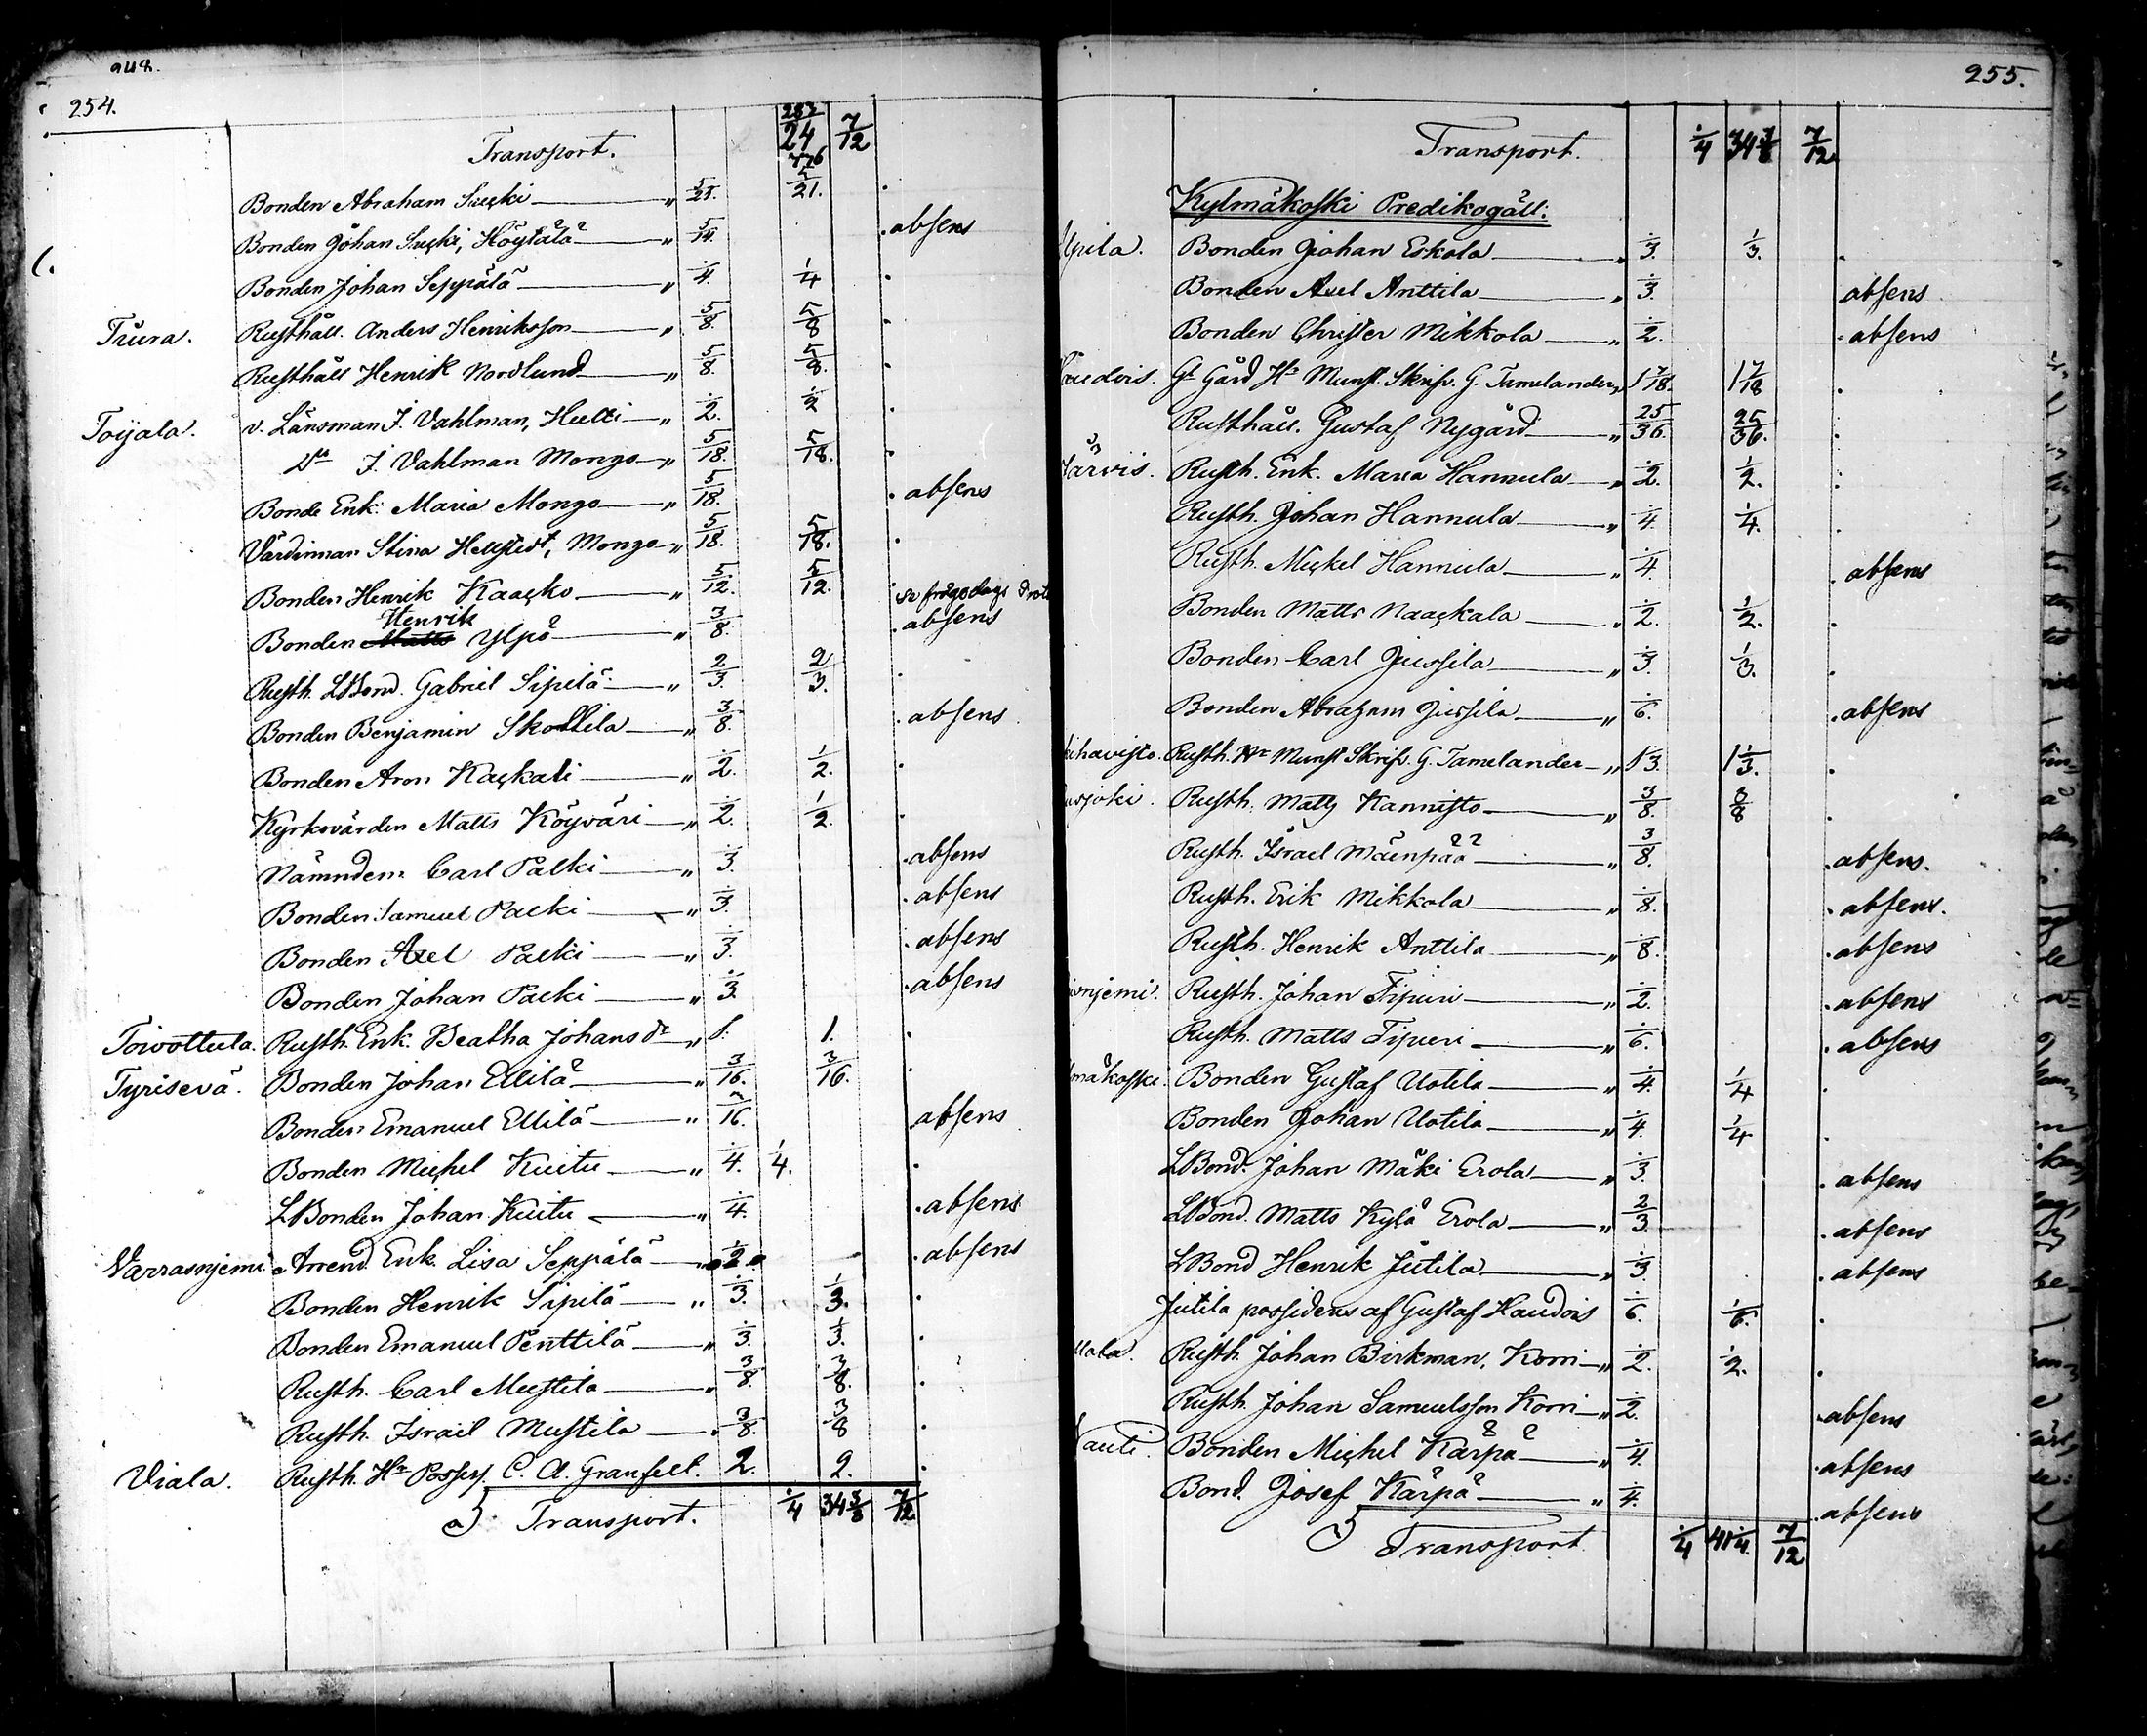 248.
254.
Transport. 24 7/12
Bonden Abraham Sucki " 5/21. 5/21.
Bonden Johan Sucki, Höytälä " 5/14. absens
Bonden Johan Seppälä " 1/4. 1/4
Tiura. Rusthåll. Anders Henriksson " 5/8. 5/8
Rusthåll Henrik Nordlund " 5/8. 5/8.
Toijala. v. Länsman J. Vahlman, Hulti " 1/2. 1/2
Do J. Vahlman Mongo " 5/18. 5/18.
Bonde Enk. Maria Mongo " 5/18. absens
Värdinnan Stina Hellstedt, Mongo " 5/18. 5/18.
Bonden Henrik Kaacko " 5/12. 5/12. se frågodags Prot
Henrik
Bonden Matts Ylpö " 3/8. absens
Rusth. LBond. Gabriel Sipilä " 2/3. 2/3.
Bonden Benjamin Skottila " 3/8. absens
Bonden Aron Kackali " 1/2. 1/2.
Kyrkovärden Matts Köyväri " 1/2. 1/2.
Nämndem: Carl Palki " 1/3. absens
Bonden Samuel Palki " 1/3. absens
Bonden Axel Palki " 1/3. absens
Bonden Johan Palki " 1/3. absens
Toivottula. Rusth. Enk. Beatha Johansdr " 1. 1.
Tyrisevä. Bonden Johan Ellilä " 3/16. 3/16.
Bonden Emanuel Ellilä " 3/16. absens
Bonden Michel Kuitu " 1/4. 1/4.
LBonden Johan Kuitu " 1/4. absens
Varrasnjemi Arrend. Enk. Lisa Seppälä " 1/2 absens
Bonden Henrik Sipilä " 1/3. 1/3.
Bonden Emanuel Penttilä " 1/3. 1/3.
Rusth. Carl Mustila " 3/8. 3/8.
Rusth. Israil Mustila " 3/8. 3/8
Viala. Rusth. Hr Possess. C. A. Granfelt. 2. 2.
Transport. 1/4 34 3/8 7/12
255.
Transport. 1/4 34 3/8 7/12
Kylmäkoski Predikogäll:
Bonden Johan Eskola " 1/3. 1/3.
Bonden Axel Anttila " 1/3. absens
Bonden Christer Mikkola " 1/2. absens
audois. Gl Gård Hr Munst. Skrifv. G. Tamelander " 1 7/18. 1 7/18
Rusthåll. Gustaf Nygård " 25/36. 25/36.
Järvis. Rusth. Enk. Maria Hannula " 1/2. 1/2.
Rusth. Johan Hannula " 1/4 1/4.
Rusth. Mickel Hannula " 1/4 absens
Bonden Matts Naackala " 1/2. 1/2.
Bonden Carl Jussila " 1/3. 1/3.
Bonden Abraham Jussila " 1/6. absens
ihavisto. Rusth. Hr Munst Skrifv. G. Tamelander " 1 1/3. 1 1/3.
usjoki. Rusth. Matts Kannisto " 3/8. 3/8
Rusth. Israel Mäenpää " 3/8. absens.
Rusth. Erik Mikkola " 1/8. absens.
Rusth. Henrik Anttila " 1/8. absens
njemi. Rusth. Johan Tipuri " 1/2. absens
Rusth. Matts Tipuri " 1/6. absens
mäkoski. Bonden Gustaf Uotila " 1/4. 1/4
Bonden Johan Uotila " 1/4. 1/4
LBond. Johan Mäki Erola " 1/3. absens
LBond. Matts Kylä Erola " 2/3. absens
LBond Henrik Jutila " 1/3. absens
Jutila possidens af Gustaf Haudois 1/6. 1/6.
Rusth. Johan Birkman, Korri " 1/2. 1/2.
Rusth. Johan Samuelsson Korri " 1/2. absens
auti. Bonden Michel Kärpä " 1/4. absens
Bond. Josef Kärpä " 1/4. absens
Transport 1/4 41 1/4. 7/12